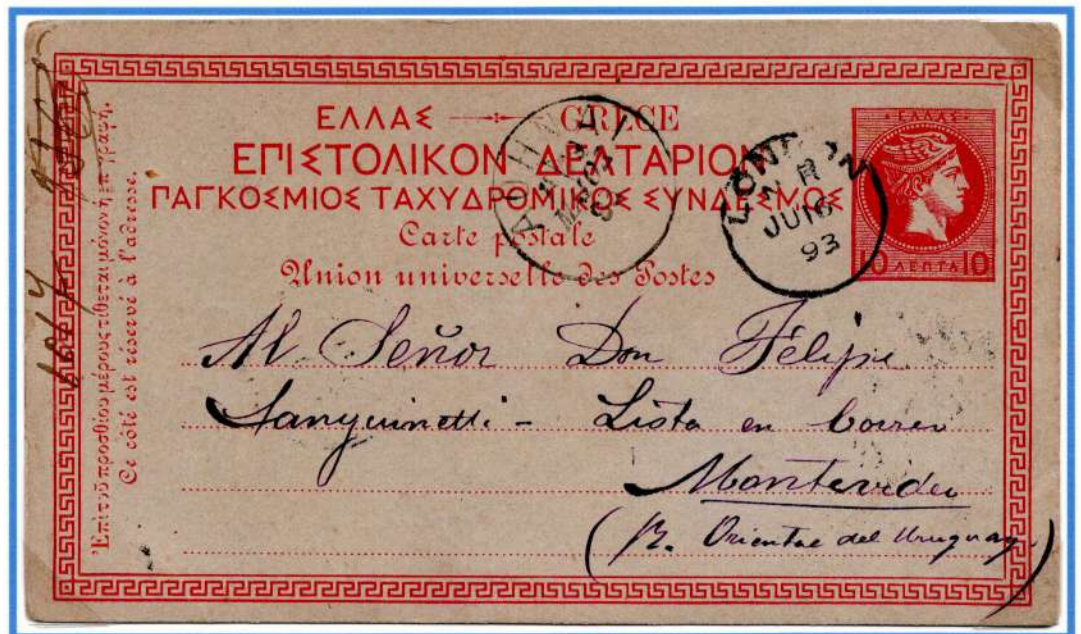 ΕΛΛΑΣ GRECE
ΕΠΙΣΤΟΛΙΚΟΝ ΔΕΛΤΑΡΙΟΝ
ΠΑΓΚΟΣΜΙΟΣ ΤΑΧΥΔΡΟΜΙΚΟΣ ΣΥΝΔΕΣΜΟΣ
Carte postale
Union universelle des Postes
ΕΛΛΑΣ
10 ΛΕΠΤΑ 10
ΑΘΗΝΑΙ
LONDON
R
JU 16
93
Al Señor Don Félipe
Sanguinetti - Lista en Correo
Montevideo
(R. Oriental del Uruguay)
Ἐπὶ τοῦ προσθίου μέρους τίθεται μόνον ἡ ἐπιγραφή.
Ce côté est réservé à l'adresse.